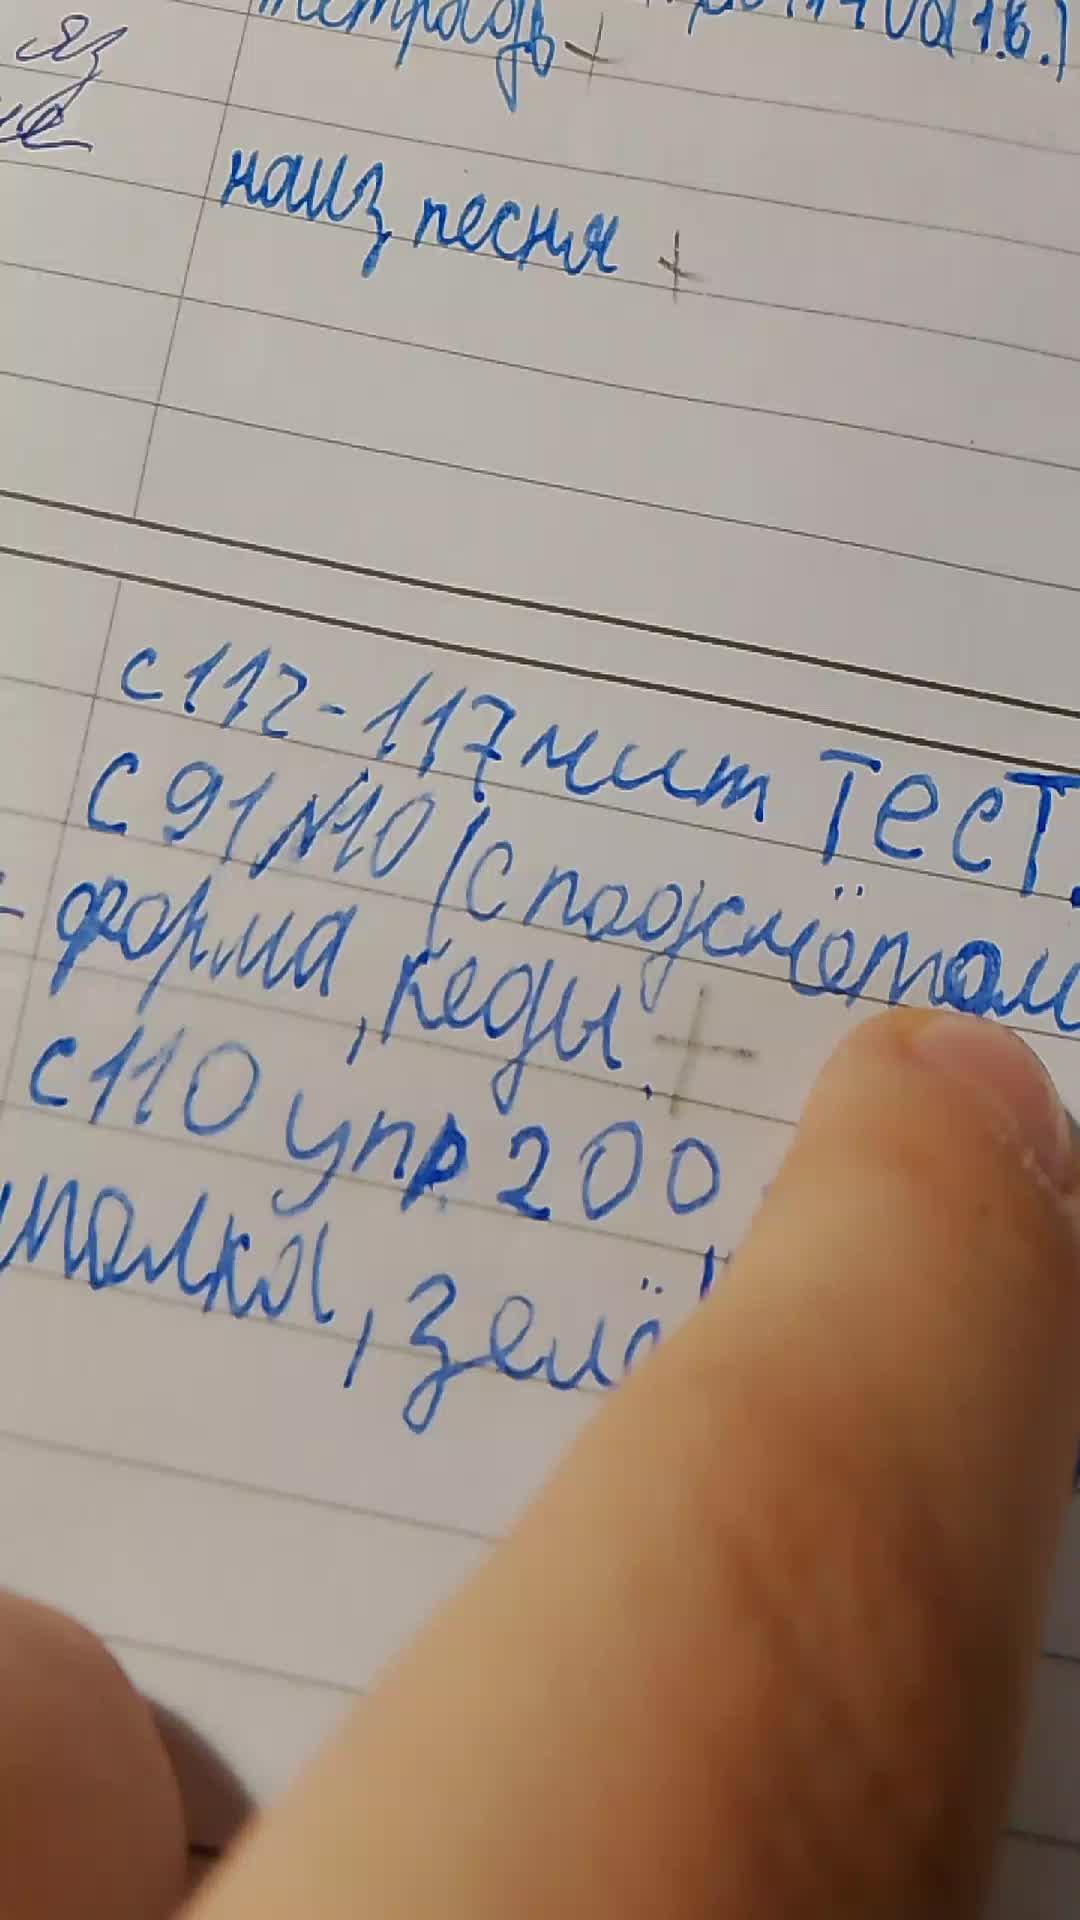 яз
тетрадь +
(1.в.)
наиз песня +
с 112-117 чит Тест.
С 91 №10 (с подсчётом
форма, кеды. +
с 110 упр 200